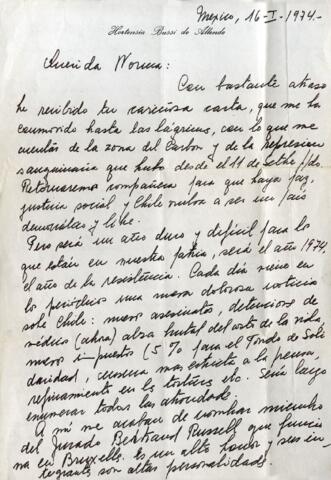 Mexico, 16-I-1974.-
Hortensia Bussi de Allende
Querida Norma:
Con bastante atraso
he recibido tu cariñosa carta, que me ha
conmovido hasta las lágrimas, con lo que me
cuentas de la zona del Carbon y de la represion
sanguinaria que hubo desde el 11 de Setbre pdo.
Retornaremos compañera para que haya paz,
justicia social y Chile vuelva a ser un país
democrático y libre.
Pero será un año duro y difícil para los
que están en nuestra patria, será el año 1974,
el año de la resistencia. Cada día vienen en
los periódicos una nueva dolorosa noticia
sobre Chile: nuevos asesinatos, detenciones de
médicos (ahora) alza brutal del costo de la vida
nuevos impuestos (5% para el Fondo de Soli
daridad, censura mas estricta a la prensa,
refinamiento en las torturas etc. Sería largo
enumerar todas las atrocidades.
A mí me acaban de nombrar miembro
del Jurado Bertrand Russell que funcio
na en Bruxelles. Es un alto honor y sus in-
tegrantes son altas personalidades.